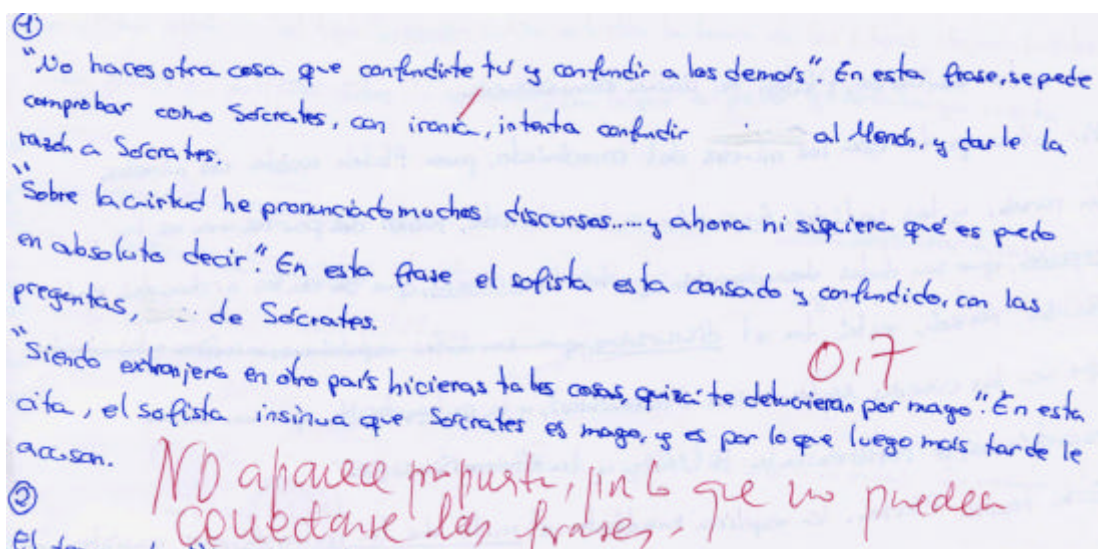 ①
"No haces otra cosa que confundirte tu y confundir a los demás". En esta frase, se pede
comprobar como Sócrates, con ironía, intenta confudir al Menón, y darle la
razón a Sócrates.
"Sobre la virtud he pronunciado muchos discursos.....y ahora ni siquiera qué es puedo
en absoluto decir". En esta frase el sofista esta cansado y confundido, con las
preguntas, de Sócrates.
0,7
"Siendo extranjero en otro país hicieras tales cosas, quizá te detuvieran por mago". En esta
cita, el sofista insinua que Sócrates es mago, y es por lo que luego más tarde le
acusan.
NO aparece propuesta, que no pueden
las frases.
②
El